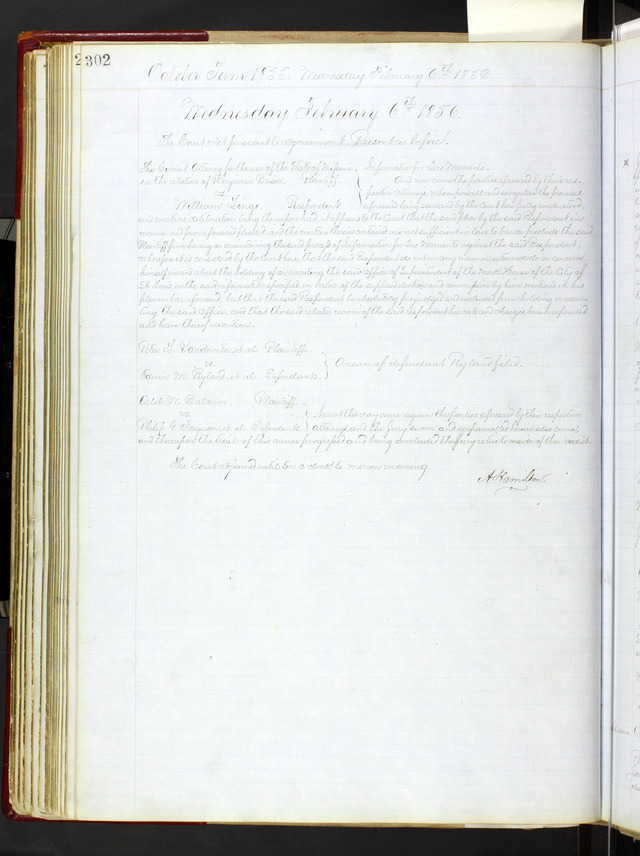 2302
October Term 1855. Wednesday February 6th 1856.
Wednesday February 6th 1856.
The Court met pursuant to adjournment. Present as before.
The Circuit Attorney for the use of the State of Missouri, Information for Quo Warranto.
on the relation of Benjamin Plaintiff. And now come the parties aforesaid by their res-
vs. pective Attorneys, whereupon all and singular the premises
William Respondent aforesaid being seen and by the Court here fully understood,
and mature deliberation being thereupon had, it appears to the Court that the said plea by the said Respondent in
manner and form aforesaid pleaded, and the matters therein contained are not sufficient in law to bar or preclude the said
Plaintiff from having or maintaining the said process of Information for Quo Warranto against the said Respondent,
Wherefore it is considered by the Court here, that the said Respondent do not in any manner intermeddle or concern
himself in and about the holding of or executing the said office of Superintendent of the Work House of the City of
St. Louis, in the said information specified, in virtue of the supposed election and commission by him made in his
plea in bar aforesaid, but that the said Respondent be absolutely forejudged and excluded from holding or execu-
ting the said office, and that the said relator recover of the said Respondent his costs and charges herein expended
and have thereof execution.
Peter L. Vandeventer et al. Plaintiffs.
vs. Answer of defendant Ryland filed.
Edwin M. Ryland, et al. Defendants.
Caleb W. Baldwin. Plaintiff.
vs. Now at this day come again the parties aforesaid by their respective
Philip G. Ferguson et al. Defendants. attorneys, and the Jury sworn and empannelled herein also come,
and thereupon the trial of this cause progressed and being concluded the Jury retire to consider of their verdict.
The Court adjourned until ten o'clock to-morrow morning.
A. Hamilton.